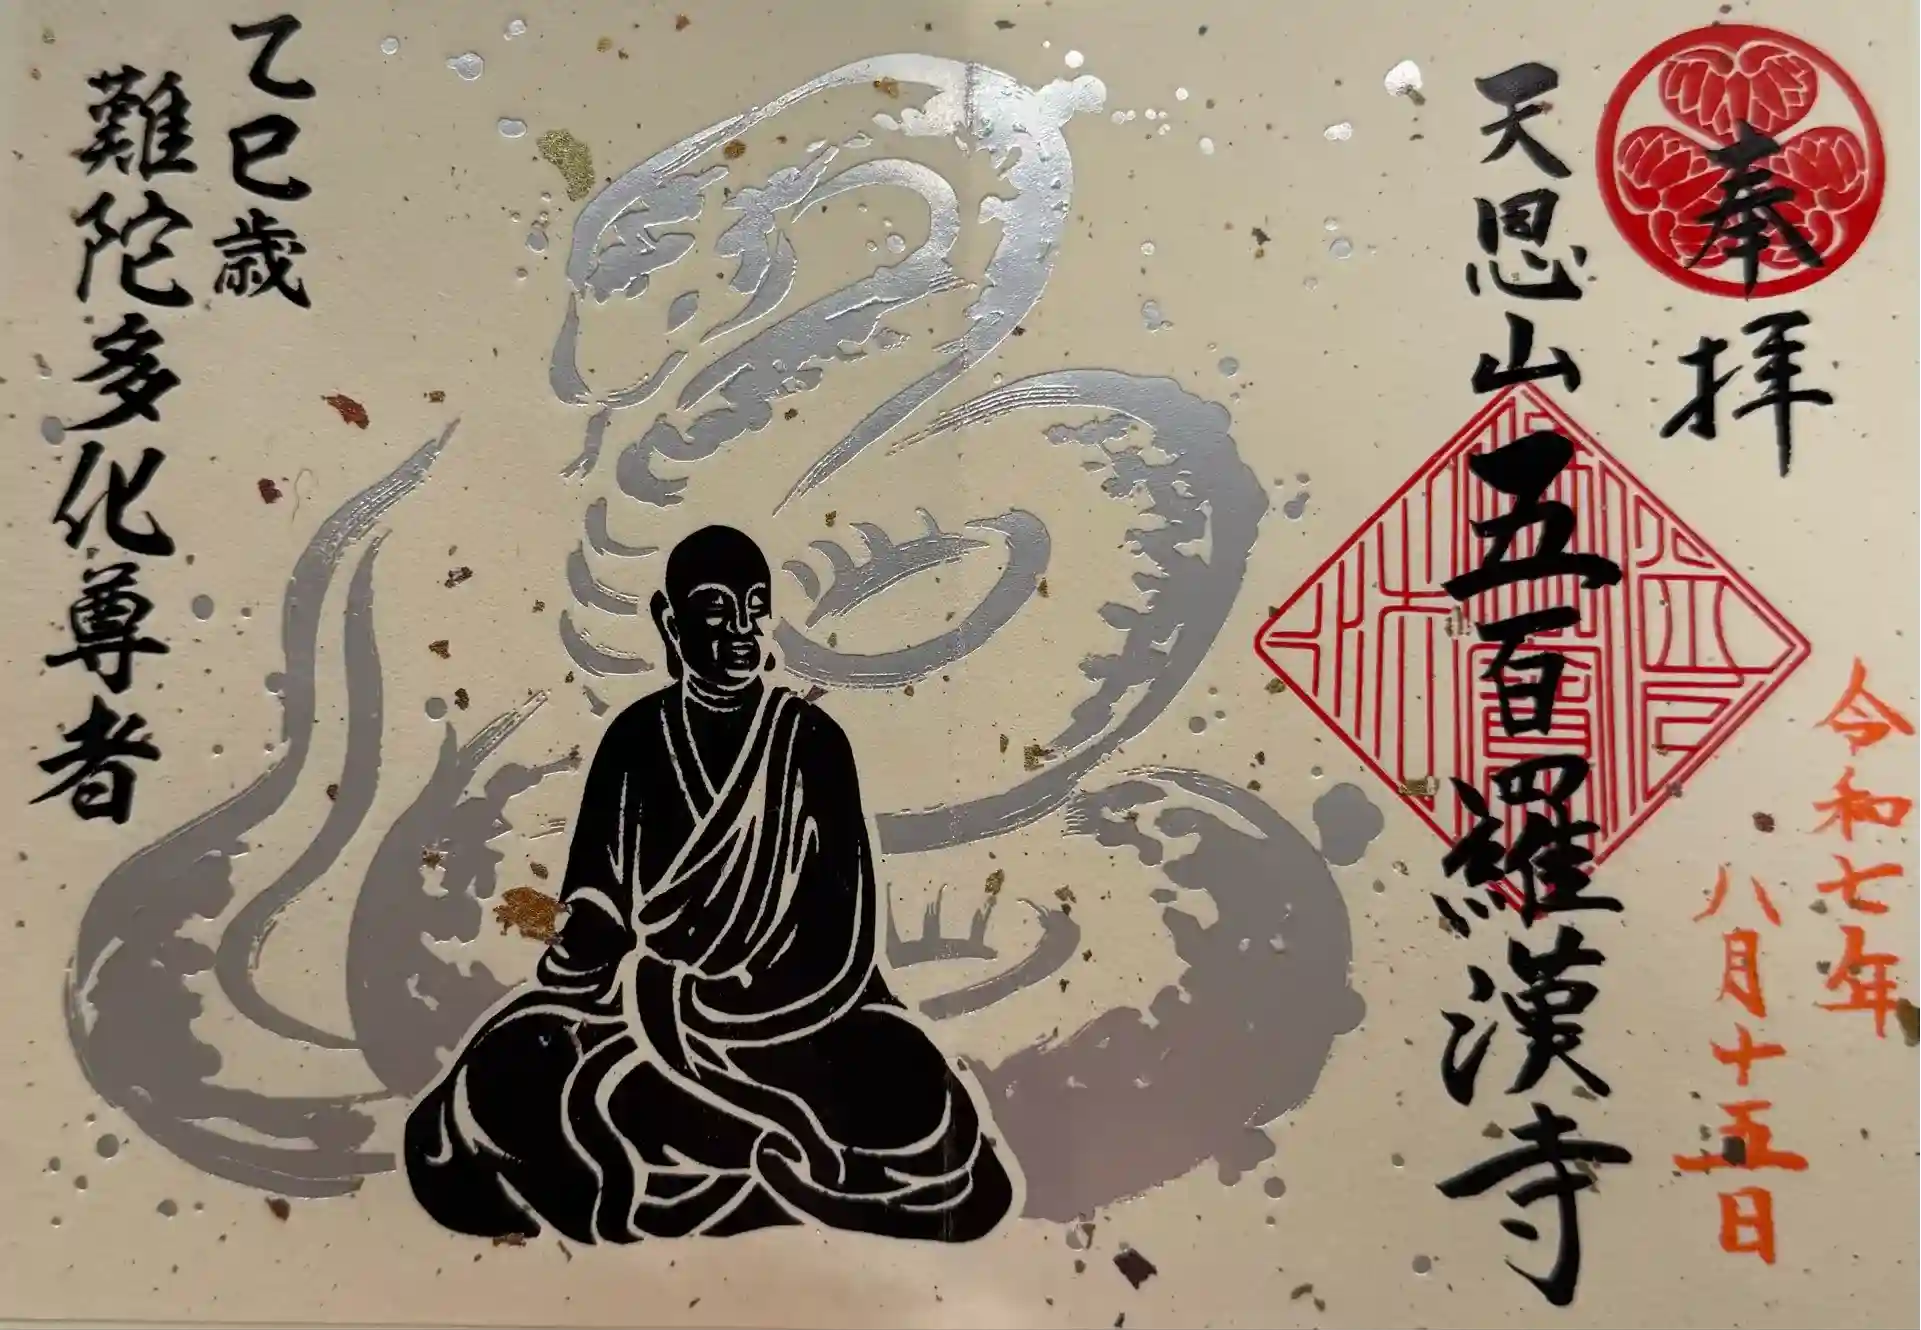 奉拝
令和七年
八月十五日
天恩山五百羅漢寺
乙巳歳
難陀多化尊者